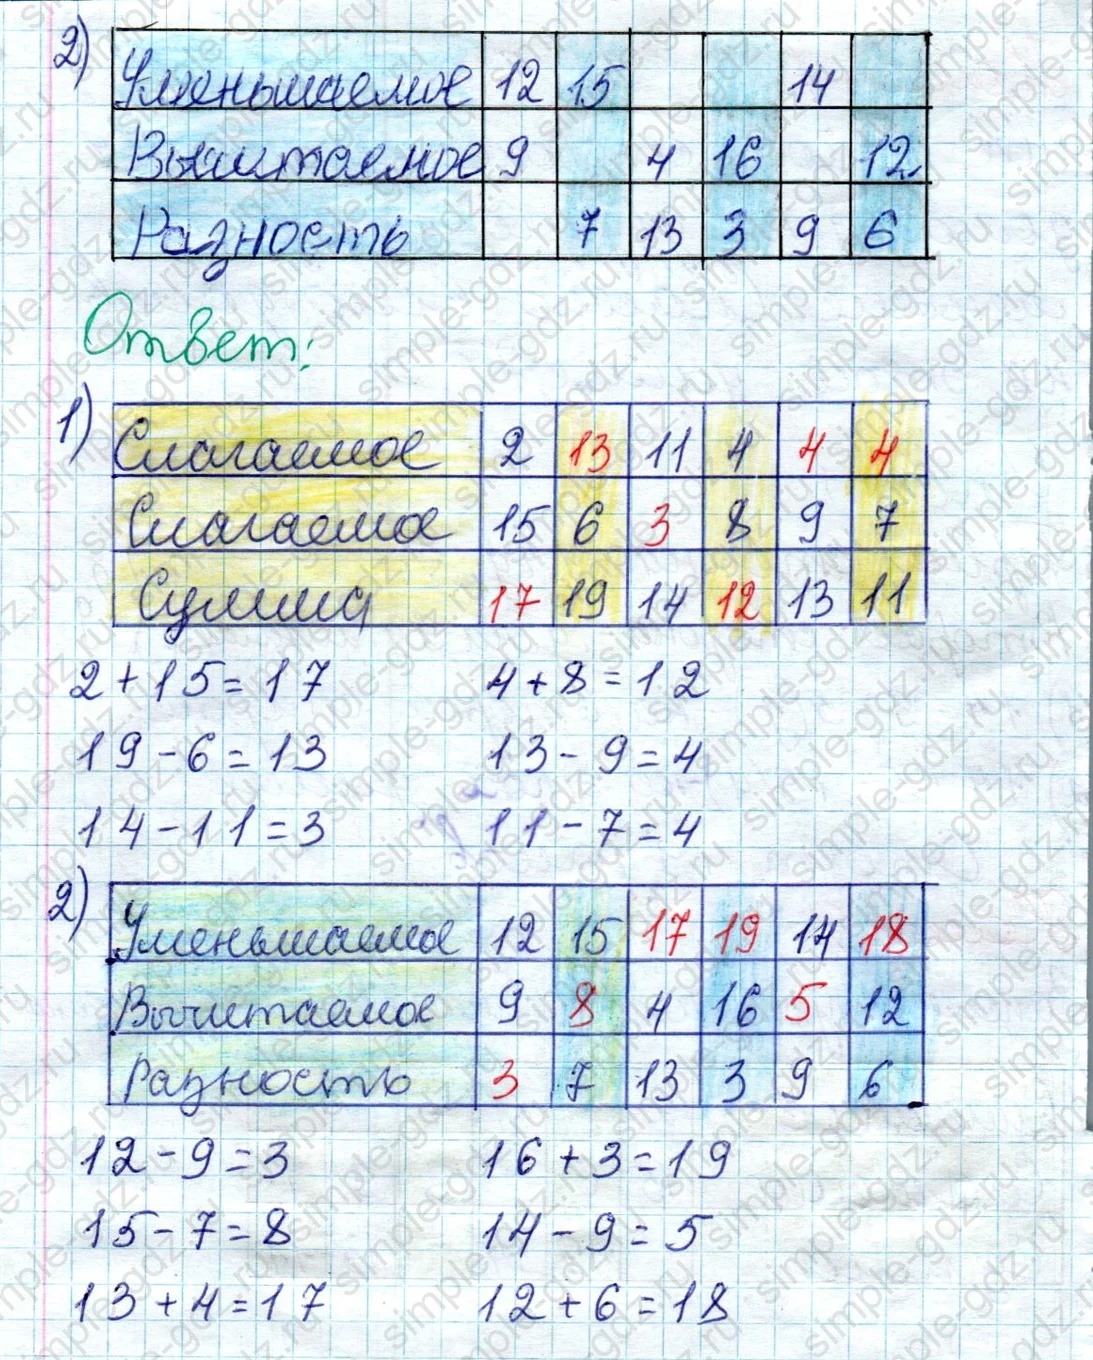 2)
Уменьшаемое 12 15 14
Вычитаемое 9 4 16 12
Разность 7 13 3 9 6
Ответ:
1)
Слагаемое 2 13 11 4 4 4
Слагаемое 15 6 3 8 9 7
Сумма 17 19 14 12 13 11
2+15=17 4+8=12
19-6=13 13-9=4
14-11=3 11-7=4
2)
Уменьшаемое 12 15 17 19 14 18
Вычитаемое 9 8 4 16 5 12
Разность 3 7 13 3 9 6
12-9=3 16+3=19
15-7=8 14-9=5
13+4=17 12+6=18
simple-gdz.ru